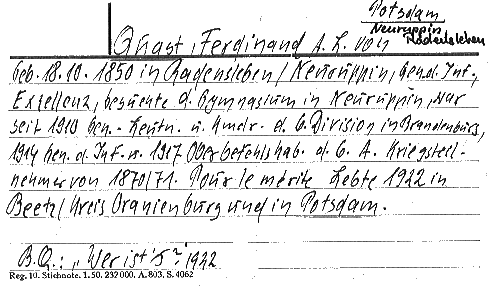 Potsdam
Neuruppin
Radensleben
Quast, Ferdinand A. L. von
geb. 18.10. 1850 in Radensleben/Neuruppin, Gen. d. Inf.,
Exzellenz, besuchte d. Gymnasium in Neuruppin, war
seit 1910 Gen.-Leutn. u. Kmdr. d. 6. Division in Brandenburg,
1914 Gen. d. Inf. u. 1917 Oberbefehlshab. d. 6. A. Kriegsteil-
nehmer von 1870/71. Pour le mérite Lebte 1922 in
Beetz/Kreis Oranienburg und in Potsdam.
B.Q.: "Wer ist's?" 1922
Reg. 10. Stichnote. 1. 50. 232 000. A. 803. S. 4062